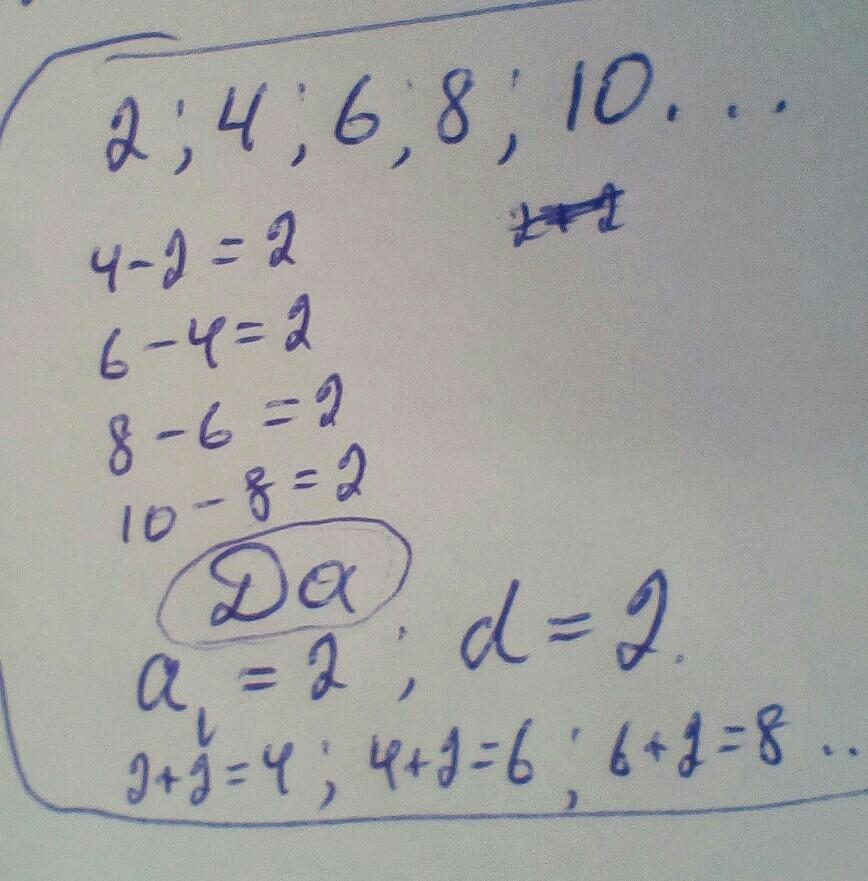 2; 4; 6; 8; 10...
4-2=2
6-4=2
8-6=2
10-8=2
Да
a₁=2; d=2.
2+2=4; 4+2=6; 6+2=8..